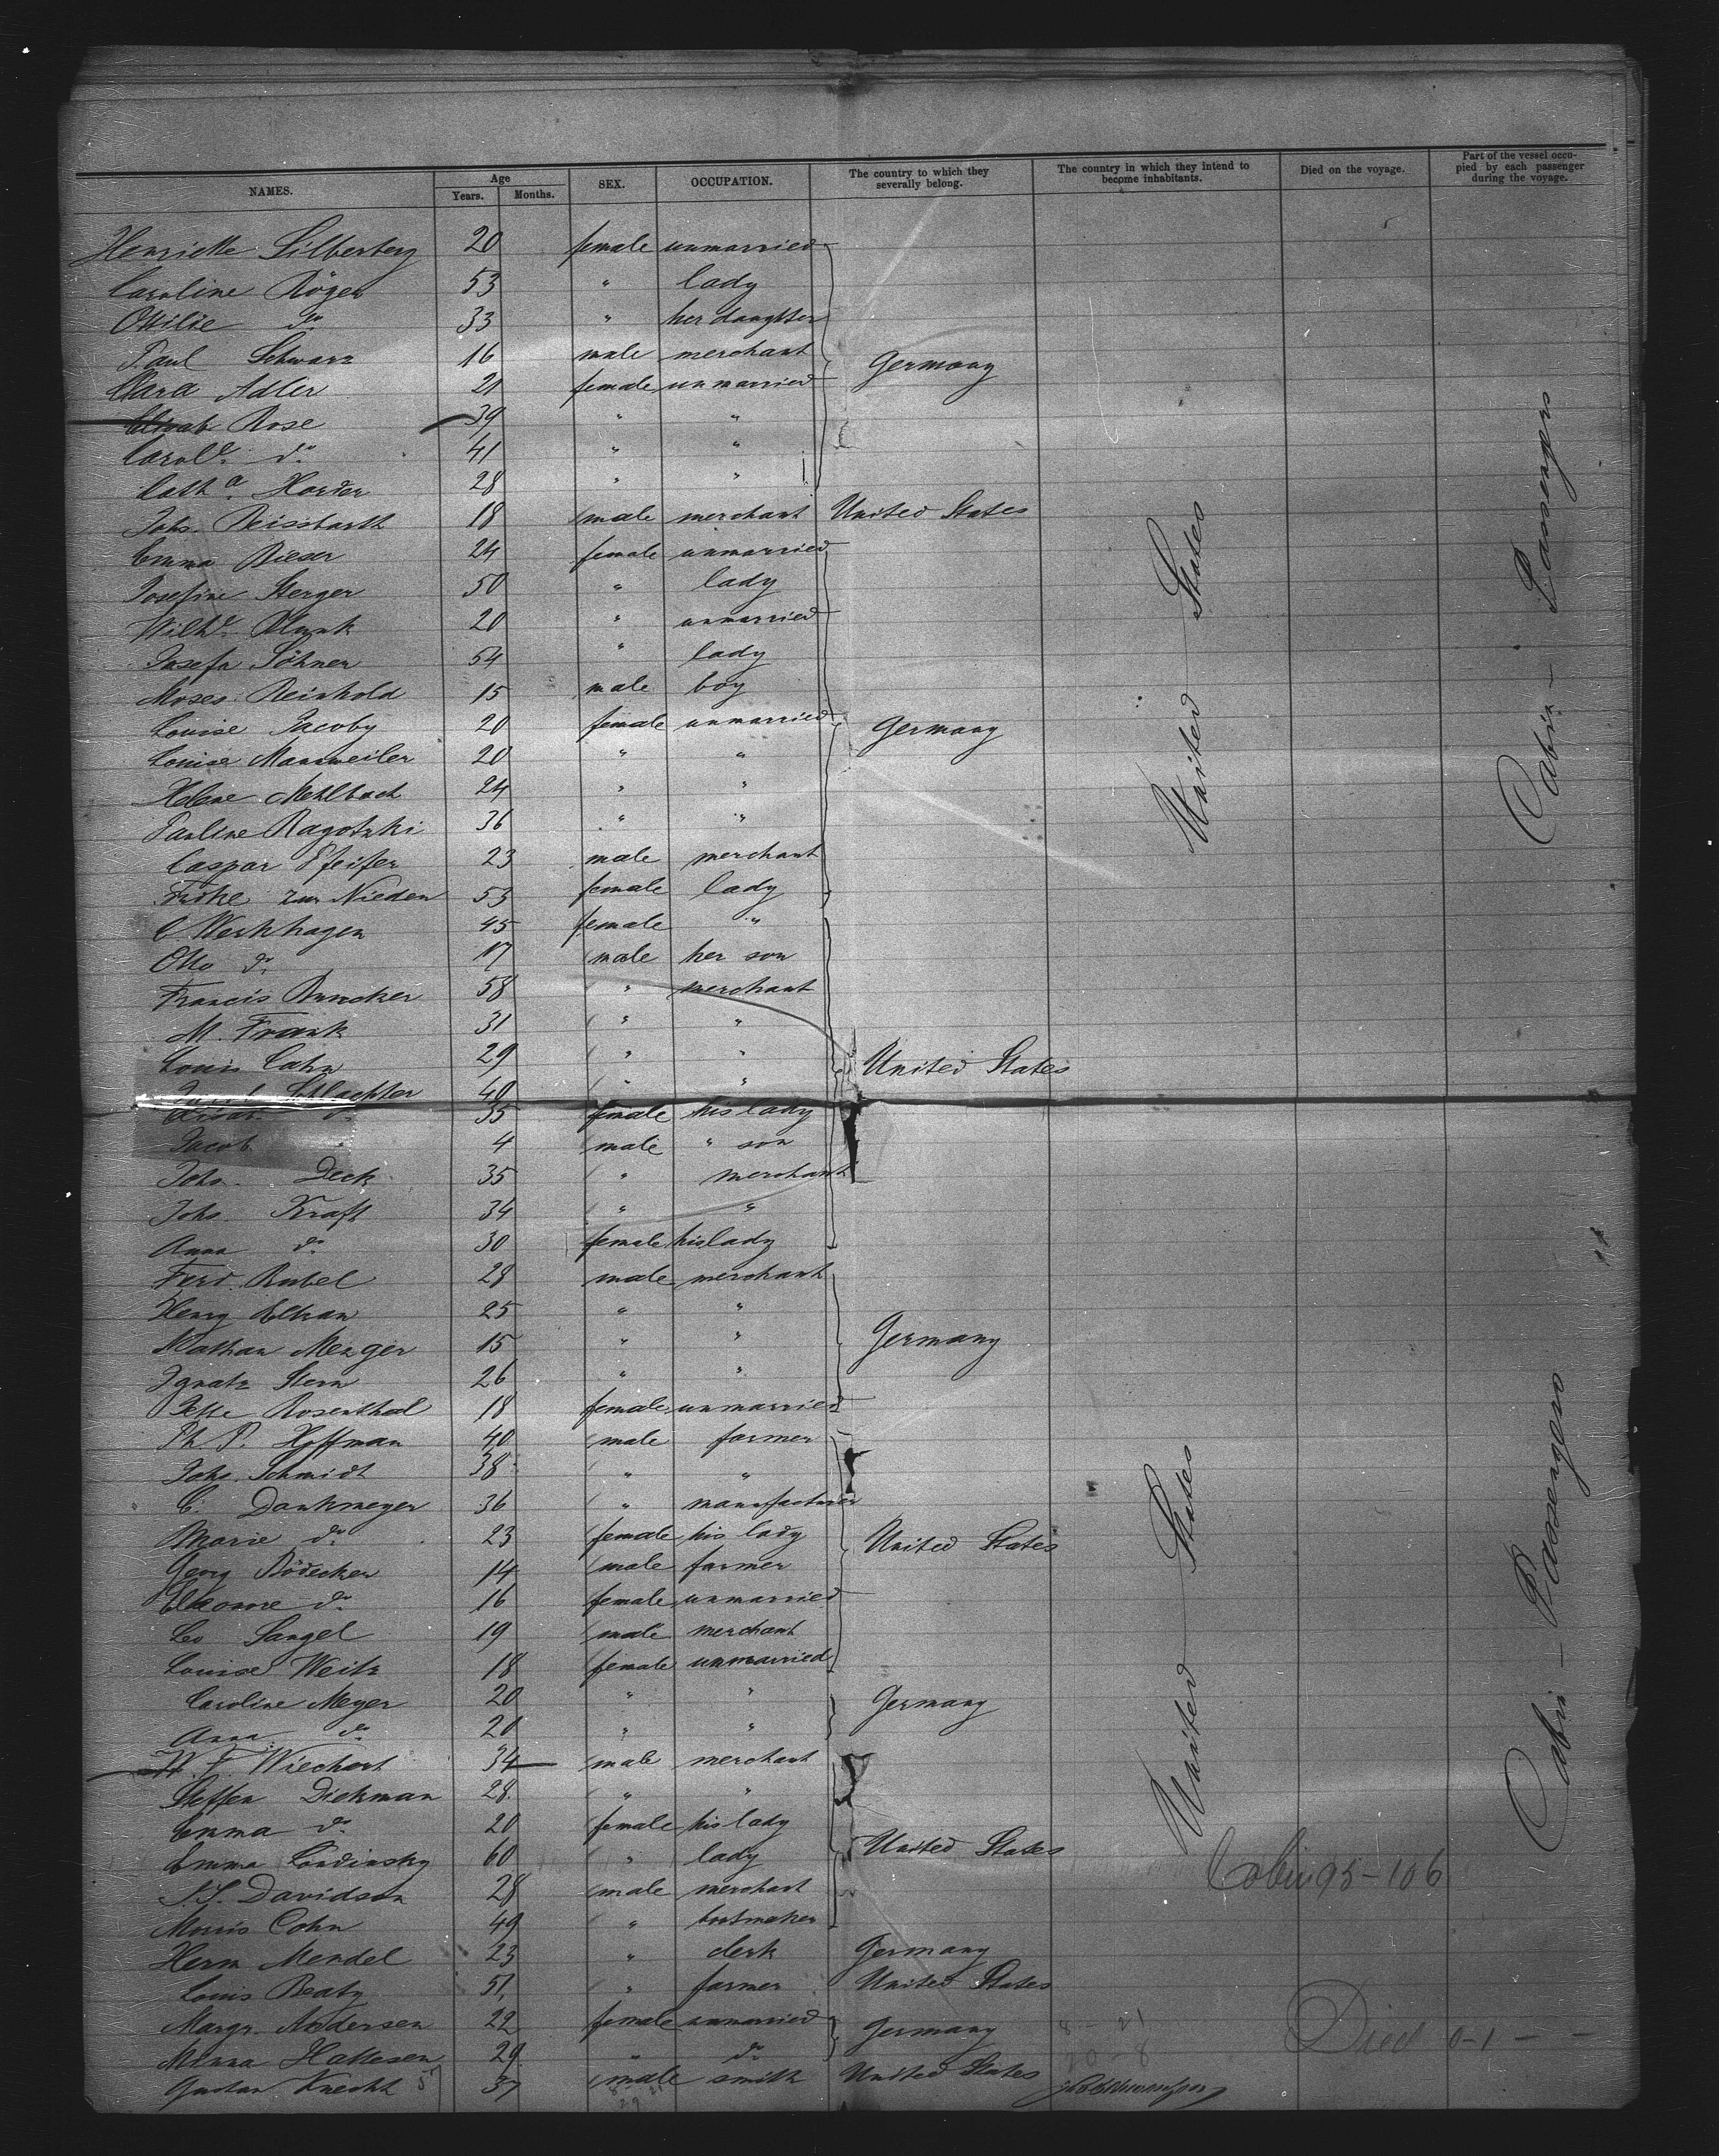 NAMES. Age Years. Months. SEX. OCCUPATION. The country to which they severally belong. The country in which they intend to become inhabitants. Died on the voyage. Part of the vessel occupied by each passenger during the voyage.
Henriette Silberberg 20 female unmarried
Caroline Röger 53 " lady
Ottilie do 33 " her daughter
Paul Schwarz 16 male merchant Germany
Clara Adler 21 female unmarried
Elisab Rose 39 " "
Carole. do 41 " "
Catha. Horder 28 " "
Johs. 18 male merchant United States
Emma Rieser 24 female unmarried
Josefine Sterger 50 " lady
Wilhe. Blank 20 " unmarried
Josefa Söhner 54 " lady
Moses Reinhold 15 male boy
Louise Jacoby 20 female unmarried Germany
Louise Mannweiler 20 " "
Helene Mehlbach 24 " "
Pauline Ragotzki 36 " "
Caspar Pfeiffer 23 male merchant
zur Nieden 53 female lady
C Werkhagen 45 female "
Otto do 17 male her son
Francis Buncker 58 " merchant
M. Frank 31 " "
Louis Cahn 29 " " United States
Schlachter 40 " "
do 35 female his lady
Jacob 4 male " son
Johs. Deck 35 " merchant
Johs. Kraft 34 " "
Anna do 30 female his lady
Ferd. Rubel 28 male merchant
Henry Elkan 25 " "
Nathan Menger 15 " " Germany
Ignatz Stern 26 " "
Jette Rosenthal 18 female unmarried
Ph. P. Hoffman 40 male farmer
Johs. Schmidt 38 " "
C. Dankmeyer 36 " manufacturer
Marie do 23 female his lady United States
Georg Bödecker 14 male farmer
Eleonore do 16 female unmarried
Leo Sangel 19 male merchant
Louise Weitz 18 female unmarried
Caroline Meyer 20 " " Germany
Anna do 20 " "
W. F. Wiechert 34 male merchant
Steffen Diekman 28. " "
Emma do 20 female his lady
Emma Londinsky 60 " lady United States
S. S. Davidson 28 male merchant
Morris Cohn 49 " bootmaker
Herm Mendel 23 " clerk Germany
Louis Beaty 51, " farmer United States
Margr. Andersen 22 female unmarried Germany
Minna Hattesen 29 " do
Gustav Knecht 37 male smith United States
United States
Cabin - Passengers
United States
Cabin - Passengers
Cabin 95-106
8-21
20-8
Died 0-1--
57